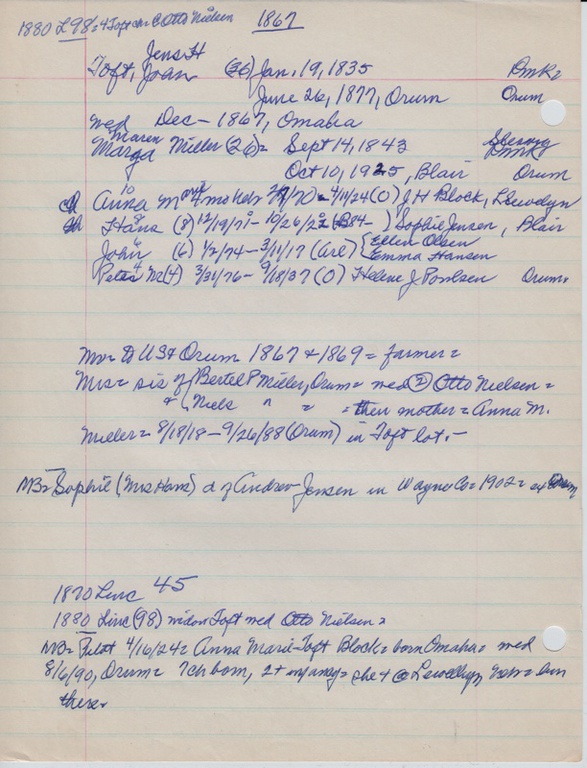 1880 L98 = 4 Toft ch @ Otto Nielsen 1867
Jens H
Toft, Joan (36) Jan. 19, 1835 DmK =
June 26, 1877, Orum Orum
wed Dec - 1867, Omaha
Maren
Marga Miller (26) = Sept 14, 1843 DmK
Oct 10, 1925, Blair Orum
ch Anna M 4/14/24 (O) J H Block, Llewelyn
Hans (8) 12/19/71 - 10/26/22 Sophie Jensen, Blair
John (6) 1/2/74 - 3/11/17 { Ellen Olsen
Emma Hansen
Peter M (4) 3/31/76 - 9/18/37 (O) Helene J. Poulsen Orum.
Mr = to US + Orum 1867 + 1869 = farmer =
Mrs = sis of Bertel P Miller, Orum = wed (2) Otto Nielsen =
& Niels " = = their mother = Anna M.
Miller = 8/18/18 - 9/26/88 (Orum) in Toft lot. -
NB = Sophie (Mrs Hans) d of Andrew Jensen in Wayne Co = 1902 = ex Orum
1870 Linc 45
1880 Linc (98) widow Toft wed Otto Nielsen =
NB = Pilot 4/16/24 = Anna Marie Toft Block = born Omaha = wed
8/6/90, Orum = 7 ch born, 2 + infancy = she + @ Llewellyn = bur
there.